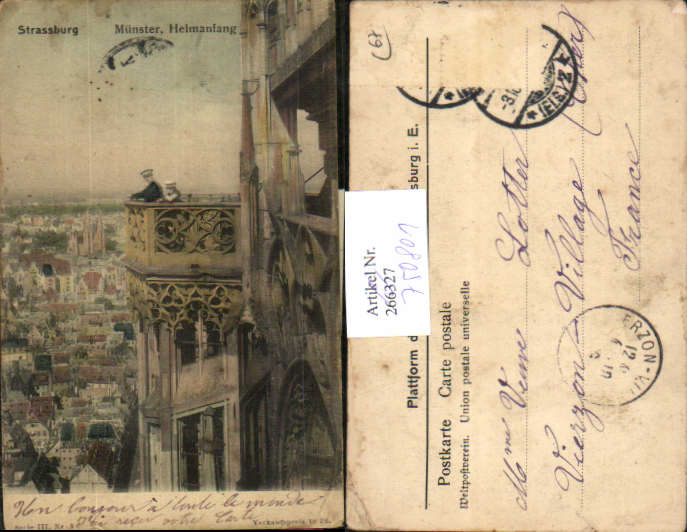 Strassburg Münster, Helmanfang
Mon bonjour à toute le monde
J'ai reçu votre Carte
Serie III. Nr.
Verkaufspreis 10 Pf.
67
Plattform d
sburg i. E.
Artikel Nr.
266327
750801
Postkarte Carte postale
Weltpostverein. Union postale universelle
Mme Veuve Lotter
Vierzon-Village
(Cher)
France
(ELS) 2
VIERZON